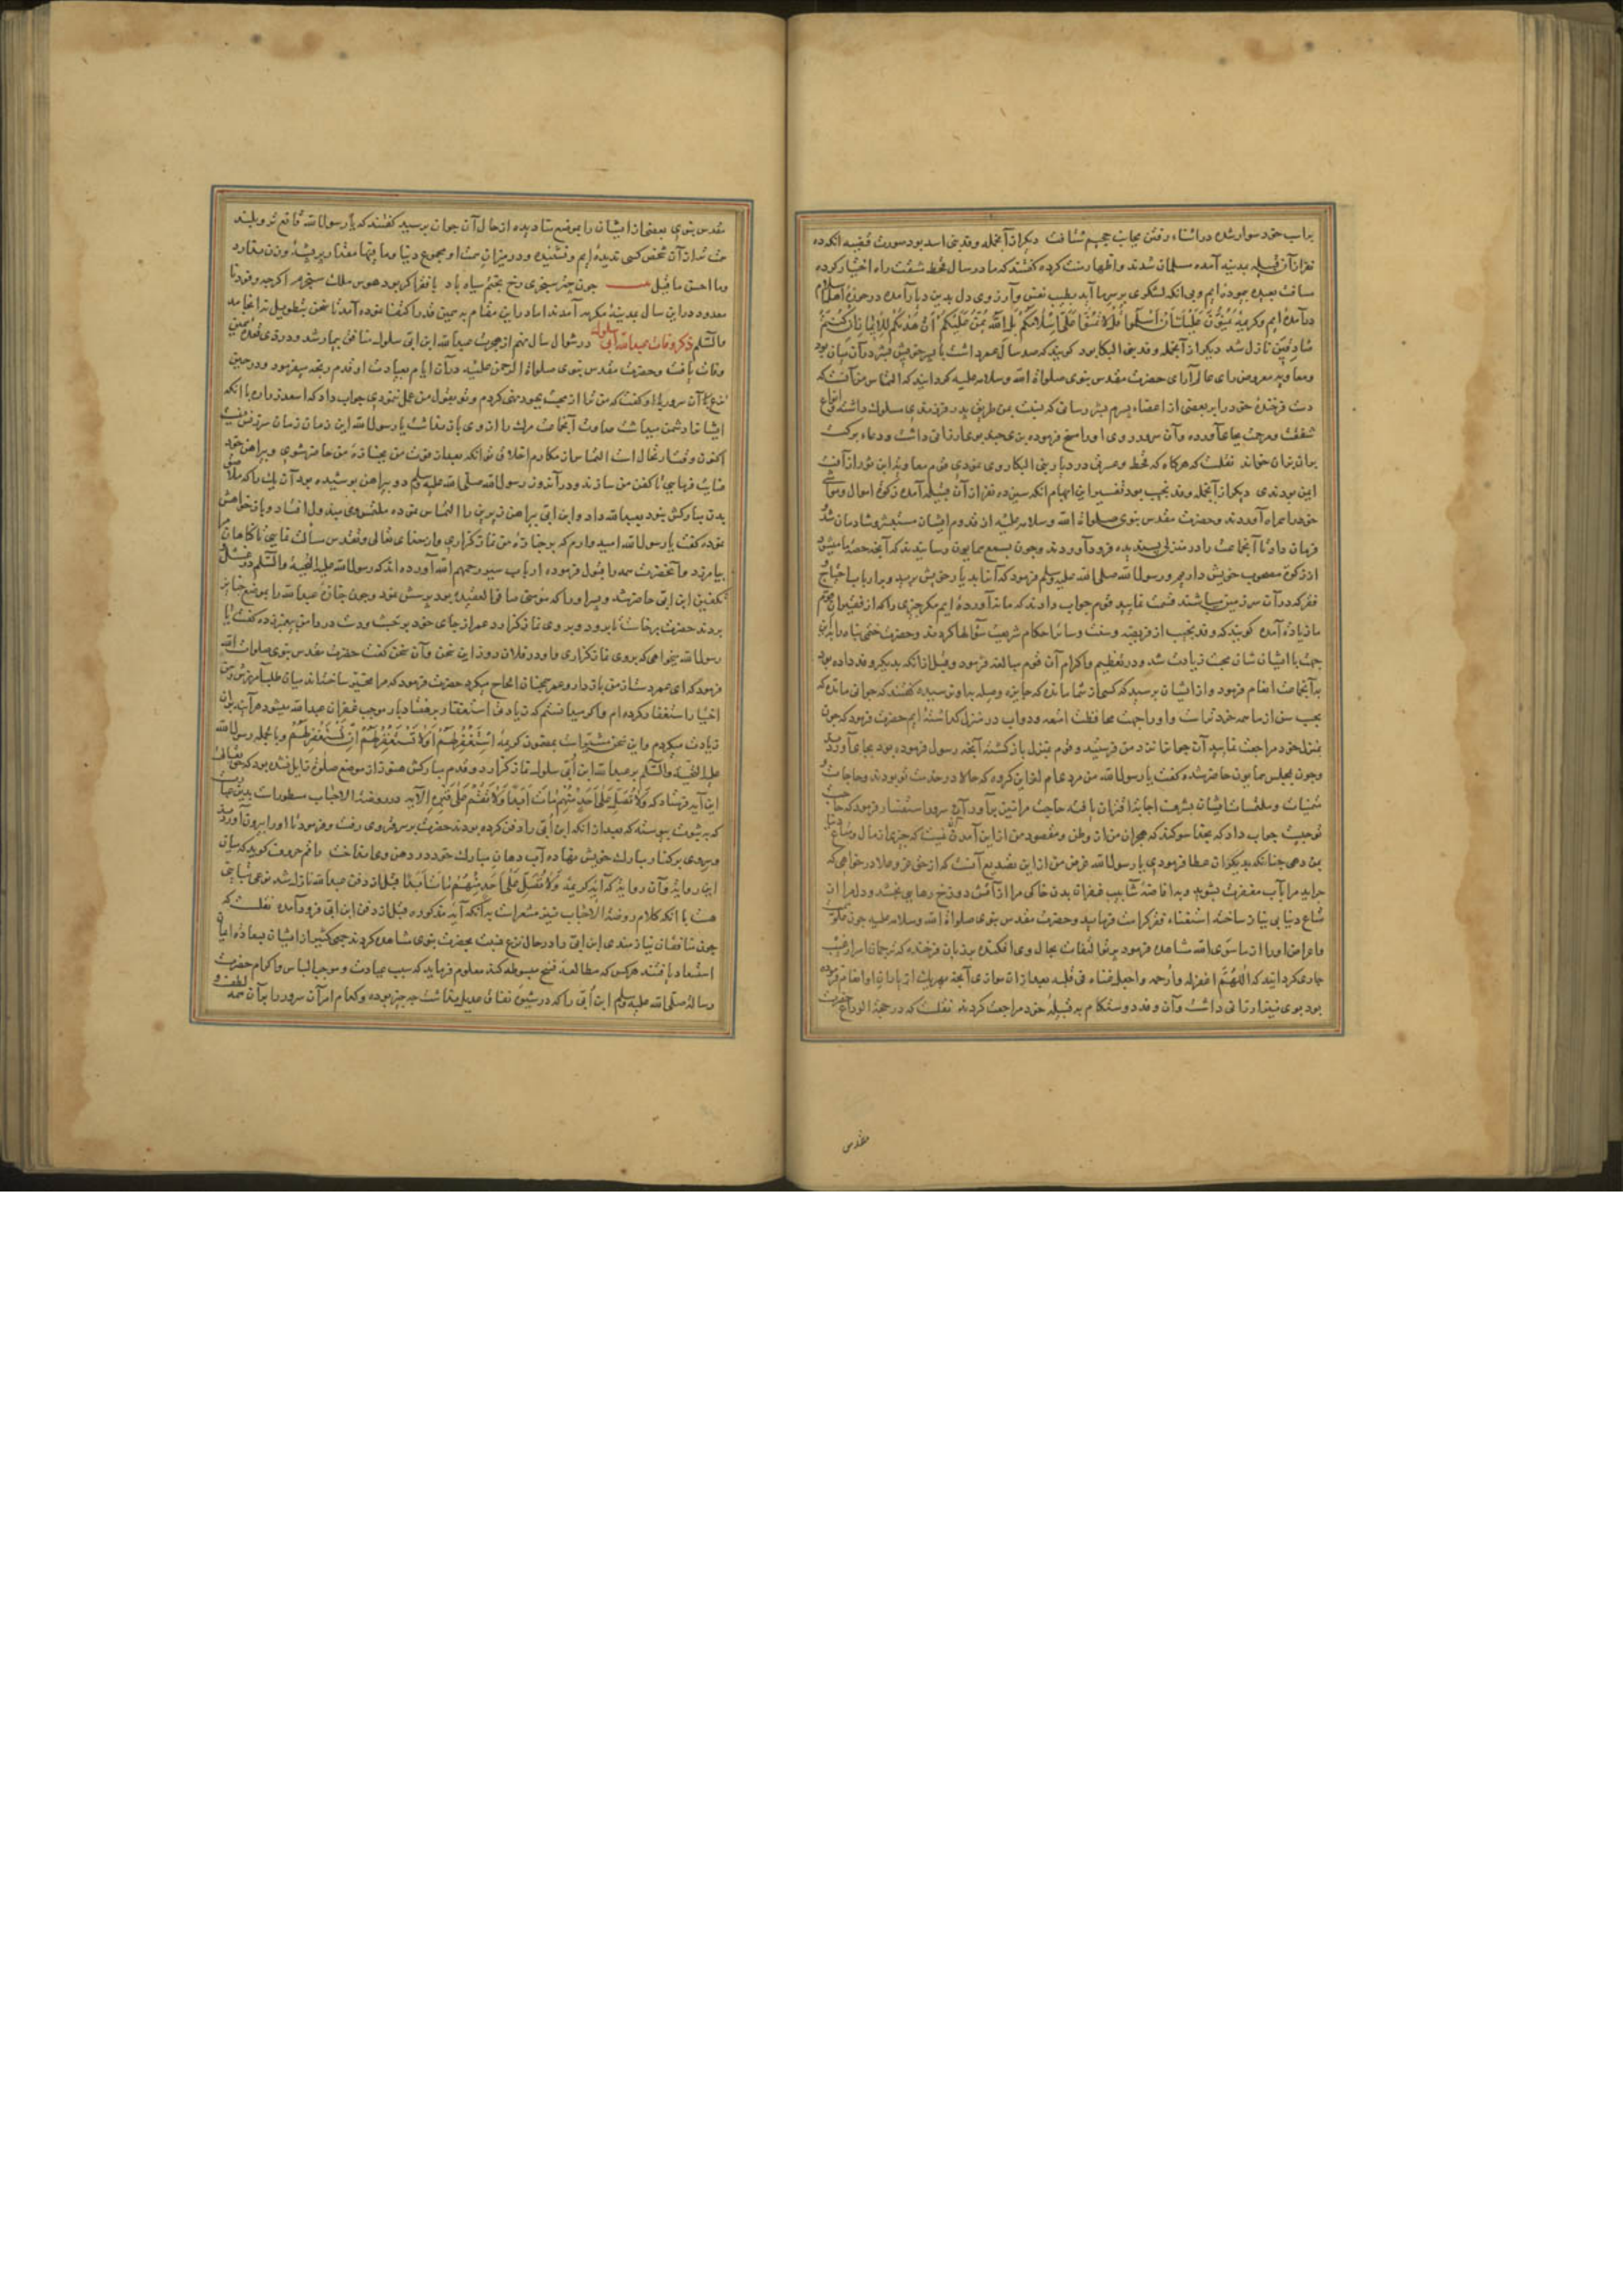 براسب خود سوار شده در اثناء رفتن بجانب جحیم شتافت دیگر از آنجمله وفد بنی اسد بود صورت قضیه آنکه ده
نفر از آن قبیله بمدینه آمده مسلمان شدند و اظهار منت کرده گفتند که ما در سال قحط شفت راه اختیار کرده
مسافت بعیده پیموده ایم و بی آنکه لشکری بر سر ما آید بطیب نفس و آرزوی دل بدین دیار آمده در حوزۀ اهل اسلام
درآمده ایم و کریمۀ یَمُنُّونَ عَلَیْكَ أَنْ أَسْلَمُوا قُلْ لَا تَمُنُّوا عَلَيَّ إِسْلَامَكُمْ بَلِ اللَّهُ يَمُنُّ عَلَيْكُمْ أَنْ هَدَاكُمْ لِلْإِيمَانِ إِنْ كُنْتُمْ
صَادِقِينَ نازل شد دیگر از آنجمله وفد بنی البکا بود گویند که صد سال عمر داشت با پسر خویش بشر در آن میان بود
و معاویه معروض رای عالم آرای حضرت مقدس نبوی صلواة الله وسلامه علیه گردانید که التماس من آنست که
دست فرخندۀ خود را بر بعضی از اعضاء پسرم بشر رسانی که نسبت بمن طریق پدر فرزندی مسلوک داشته انواع
شفقت و مرحمت بجای آورده و آن سرور روی او را مسح فرموده بزی چند بوی ارزانی داشت و دعاء برکت
بر ایشان خواند نقلست که هرگاه که قحط و عسرتی در دیار بنی البکا روی نمودی قوم معاویه ازین شور از آفت
ایمن بودندی دیگر از آنجمله وفد تجیب بود تفسیر این ابهام آنکه سیزده نفر از آن قبیله آمده زکوة اموال و مواشی
خود را همراه آوردند و حضرت مقدس نبوی صلواة الله وسلامه علیه از قدوم ایشان مستبشر و شادمان شد
فرمان داد تا آنجماعت را در منزلی پسندیده فرود آوردند و چون بسمع همایون رسانیدند که آنچه حصه ما میشود
از زکوة مصحوب خویش داریم رسول الله صلی الله علیه وسلم فرمود که آنرا بدیار خویش برید و بر ارباب احتیاج
فقر که در آن سرزمین میباشند قسمت نمایید قوم جواب دادند که ما نیاورده ایم مگر چیزی را که از فقیران قوم
ما زیاده آمده گویند که وفد تجیب از فریضه و سنت و سایر احکام شریعت سؤالها کردند و حضرت ختمی پناه را بدین
جهت با ایشان شان محبت زیادت شد و در تعظیم و اکرام آن قوم مبالغه فرمود و قبل از آنکه بدیگر وفد داده بود
بدآنجماعت انعام فرمود و از ایشان پرسید که کسی از شما مانده که جایزه و صله بدو نرسیده گفتند که جوانی مانده که
بحسب سن از ما همه خردتر است و او را جهت محافظت امتعه و دواب در منزل گذاشته ایم حضرت فرمود که چون
بمنزل خود مراجعت نمایید آن جوان را نزد من فرستید و قوم بمنزل بازگشته آنچه رسول فرموده بود بجای آوردند
و چون بمجلس همایون حاضر شده گفت یا رسول الله من مردی ام از این گروه که حالا در خدمت تو بودند و حاجات و
متمنیات و ملتمسات ایشان بشرف اجابت اقتران یافته حاجت مرا نیز برآور آن سرور استفسار فرمود که حاجت
تو چیست جواب داد که بخدا سوگند که هجران من از وطن و مقصود من از این آمدن آن نیست که چیزی از مال و متاع دنیا
بمن دهی چنانکه بدیگران عطا فرمودی یا رسول الله غرض من از این تصدیع آنست که از حق عز وعلا درخواهی که
جراید مرا بآب مغفرت بشوید و بافاضۀ شآبیب غفران بدن خاکی مرا از آتش دوزخ رهایی بخشد و دلم را از
متاع دنیا بی نیاز ساخته استغناء فقر کرامت فرماید و حضرت مقدس نبوی صلواة الله وسلامه علیه چون علو همت
و اعراض او را از ماسوی الله مشاهده فرمود پرتو التفات بحال وی افکنده بر زبان فرخنده که ترجمان اسرار غیب
جاری گردانید که اللهم اغفر له وارحمه واجعل غناء فی قلبه بعد از آن موازی آنچه بهر یک از یاران او انعام فرموده
بود بوی نیز ارزانی داشت و آن وفد دوستکام بقبیلۀ خود مراجعت کردند نقلست که در حجة الوداع حضرت
مقدس
مقدس نبوی بعضی از ایشان را بموضع منا دیده از حال آن جوان پرسید گفتند که یا رسول الله قانع تر و بلند
همت تر از آن شخص کسی ندیده ایم و نشنیده و در میزان همت او مجموع دنیا و ما فیها مقدار پر پشه وزن ندارد
و ما احسن ما قیل چون چتر سنجری رخ بختم سیاه باد با فقر اگر بود هوس ملک سنجرم اگرچه وفود نا
معدود در این سال بمدینۀ مکرمه آمدند اما در این مقام بهمین قدر اکتفا نموده آمد تا سخن بتطویل نینجامد
والسلم ذکر وفات عبدالله ابی سلول در شوال سال نهم از هجرت عبدالله ابن ابی سلول منافق بیمار شد و در ذی قعده همین
وفات یافت و حضرت مقدس نبوی صلواة الرحمن علیه در آن ایام بعیادت او قدم رنجه میفرمود و در حین
نزع آن سرور با او گفت که من ترا از محبت یهود منع کردم و تو قبول من عمل ننمودی جواب داد که اسعد زراره با آنکه
ایشانرا دشمن میداشت عداوت آنجماعت مرگ را از وی باز نداشت یا رسول الله این زمان زمان سرزنش نیست
اکنون وقت ارتحال است التماس از مکارم اخلاق تو آنکه بعد از فوت من بجنازۀ من حاضر شوی و پیراهن خود
عنایت فرمایی تا کفن من سازند و در آنروز رسول الله صلی الله علیه وسلم دو پیراهن پوشیده بود آن یک را که ملاصق
بدن مبارکش نبود بعبدالله داد و ابن ابی پیراهن زیرین را التماس نموده ملتمس وی مبذول افتاد و باز خواهش
نموده گفت یا رسول الله امیدوارم که بر جنازۀ من نماز گزاری و از خدای تعالی و تقدس مسألت نمایی تا گناهان مرا
بیامرزد و آنحضرت همه را قبول فرموده ارباب سیر رحمهم الله آورده اند که رسول الله علیه التحیة والسلم در غسل
تکفین ابن ابی حاضر شد و پسر او را که مؤمنی صافی العقیده بود پرسش نمود و چون جنازۀ عبدالله را بموضع جنایز
بردند حضرت برخاست تا برود و بر وی نماز گزارد عمر از جای خود برجست و دست در دامن پیغمبر زده گفت یا
رسول الله میخواهی که بر وی نماز گزاری و او در فلان روز این سخن و آن سخن گفت حضرت مقدس نبوی صلوات الله
فرمود که ای عمر دست از من باز دار و عمر همچنان الحاح میکرد حضرت فرمود که مرا مخیر ساخته اند میان طلب آمرزش و من
اختیار استغفار کرده ام و اگر میدانستم که زیادت استغفار بر هفتاد بار موجب غفران عبدالله میشود هرآینه بران
زیادت میکردم و این سخن مشعر است بمضمون کریمۀ اسْتَغْفِرْ لَهُمْ أَوْ لَا تَسْتَغْفِرْ لَهُمْ إِنْ تَسْتَغْفِرْ لَهُمْ و بالجمله رسول الله
علیه التحیة والسلم بر عبدالله ابن ابی سلول نماز گزارد و قدم مبارکش هنوز از موضع صلوة زایل نشده بود که حق تعالی
این آیه فرستاد که وَلَا تُصَلِّ عَلَى أَحَدٍ مِنْهُمْ مَاتَ أَبَدًا وَلَا تَقُمْ عَلَى قَبْرِهِ الآیه در روضة الاحباب مسطور است بدین عبارت
که بثبوت پیوسته که بعد از آنکه ابن ابی را دفن کرده بودند حضرت بر سر قبر وی رفت و فرمود تا او را بیرون آوردند
و سر وی بر کنار مبارک خویش نهاده آب دهان مبارک خود در دهن وی انداخت راقم حروف گوید که میان
این روایة و آن روایة که آیة کریمۀ وَلَا تُصَلِّ عَلَى أَحَدٍ مِنْهُمْ مَاتَ أَبَدًا قبل از دفن عبدالله نازل شد نوعی تباینی
هست با آنکه کلام روضة الاحباب نیز مشعر است بر آنکه آیة مذکوره قبل از دفن ابن ابی فرود آمده نقلست که
چون منافقان نیازمندی ابن ابی را در حال نزع نسبت بحضرت نبوی مشاهده کردند جمعی کثیر از ایشان بسعادت ایمان
استسعاد یافتند هرکس که مطالعۀ نسخ مبسوطه کند معلوم فرماید که سبب عیادت و موجب الباس و اکرام حضرت
رسالة صلی الله علیه وسلم ابن ابی را که در شیوۀ نفاق عدیل نداشت چه چیز بوده و کدام امر آن سرور را بر آن همه لطف و